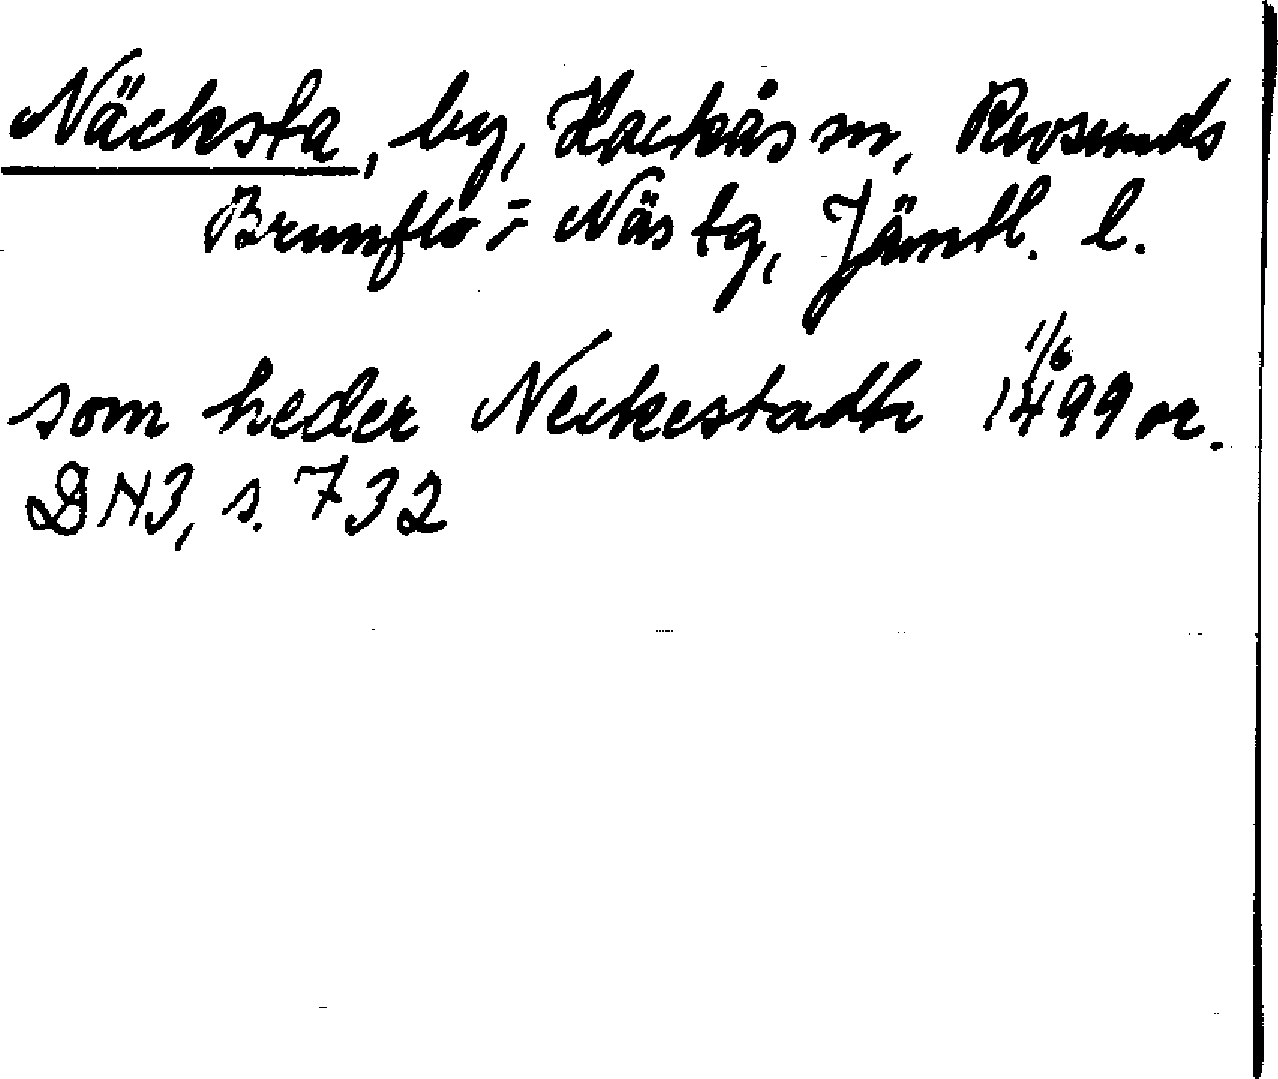 Näcksta, by, Hackås sn, Revsunds
Brunflo- Näs tg, Jämtl. l.
som heder Neckestadh 1/6 1499 or.
DN3, s. 732